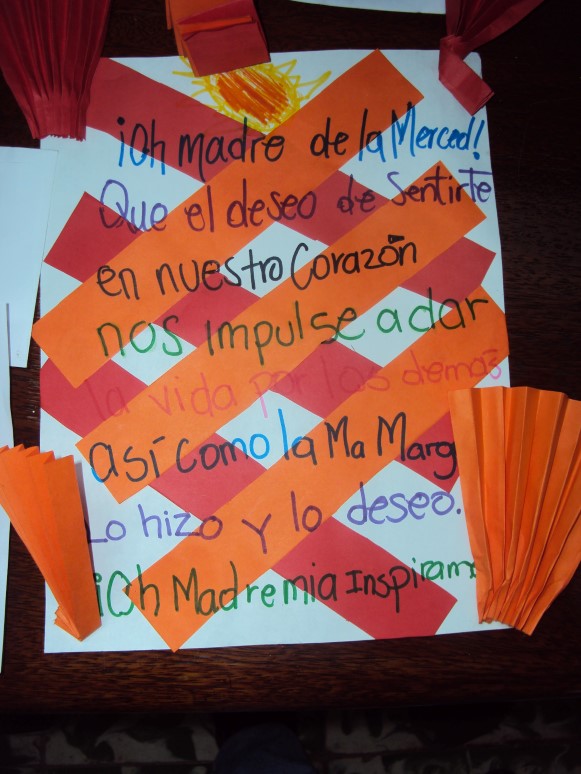 ¡Oh madre de la Merced!
Que el deseo de Sentirte
en nuestro Corazón
nos impulse a dar
la vida por los demás
así como la Ma Marg
Lo hizo y lo deseo.
¡Oh Madre mia Inspirame